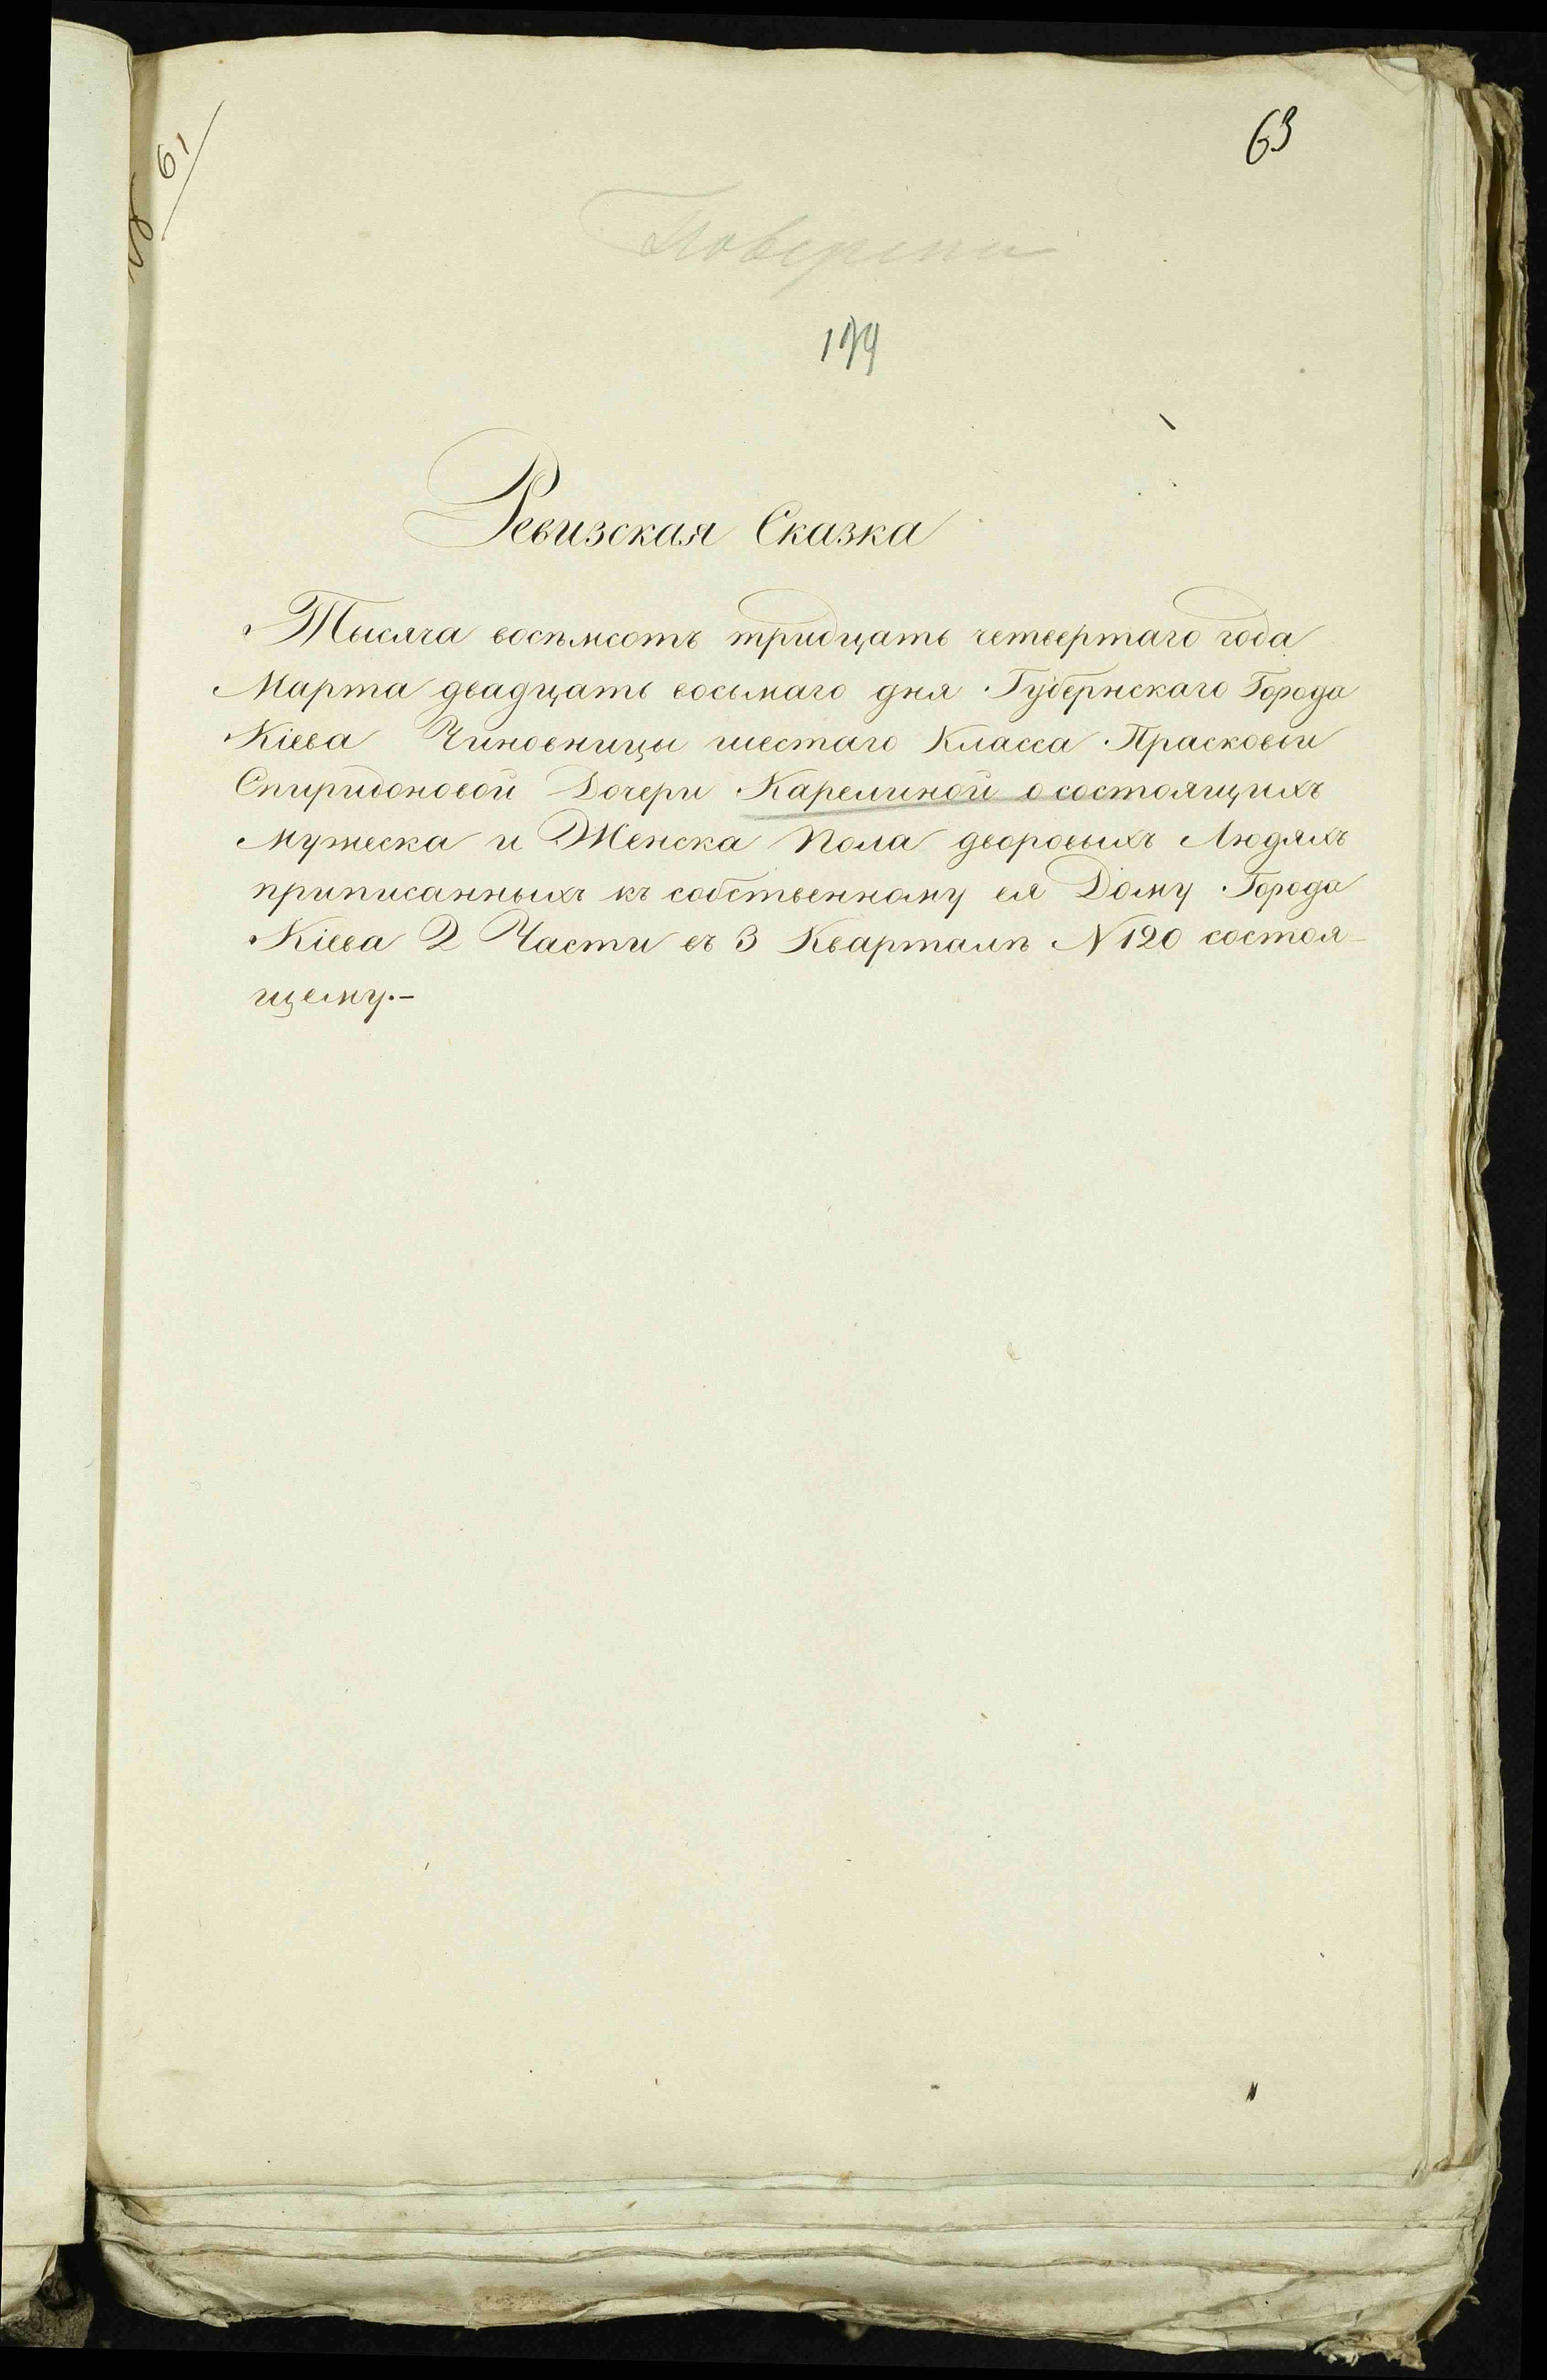 61
63
Поверено
Ревизская Сказка
Тысяча восемсотъ тридцать четвертаго года
Марта двадцать восьмаго дня Губернскаго Города
Кіева Чиновницы шестаго Класса Прасковьи
Спиридоновой Дочери Карелиной о состоящихъ
Мужеска и Женска Пола дворовыхъ Людяхъ
приписанныхъ къ собственному ея Дому Города
Кіева 2 Части въ 3 Кварталѣ N 120 состоя-
щему.-